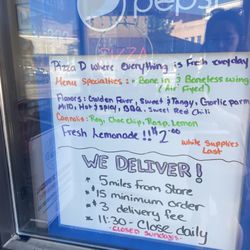 pepsi
PIZZA
Pizza D where everything is Fresh everyday
Menu Specialties: * Bone in & Boneless wing
(Air Fryed)
Flavors: Golden Fever, Sweet & Tangy, Garlic parm
Mild, Hot & spicy, BBQ, Sweet Red Chili
Cannolis: Reg, Choc Chip, Rasp, Lemon
Fresh Lemonade !!! $2.00
While Supplies
Last
WE DELIVER!
* 5 miles from Store
* $15 minimum order
* $3 delivery fee
* 11:30 - Close daily
-CLOSED Sundays-